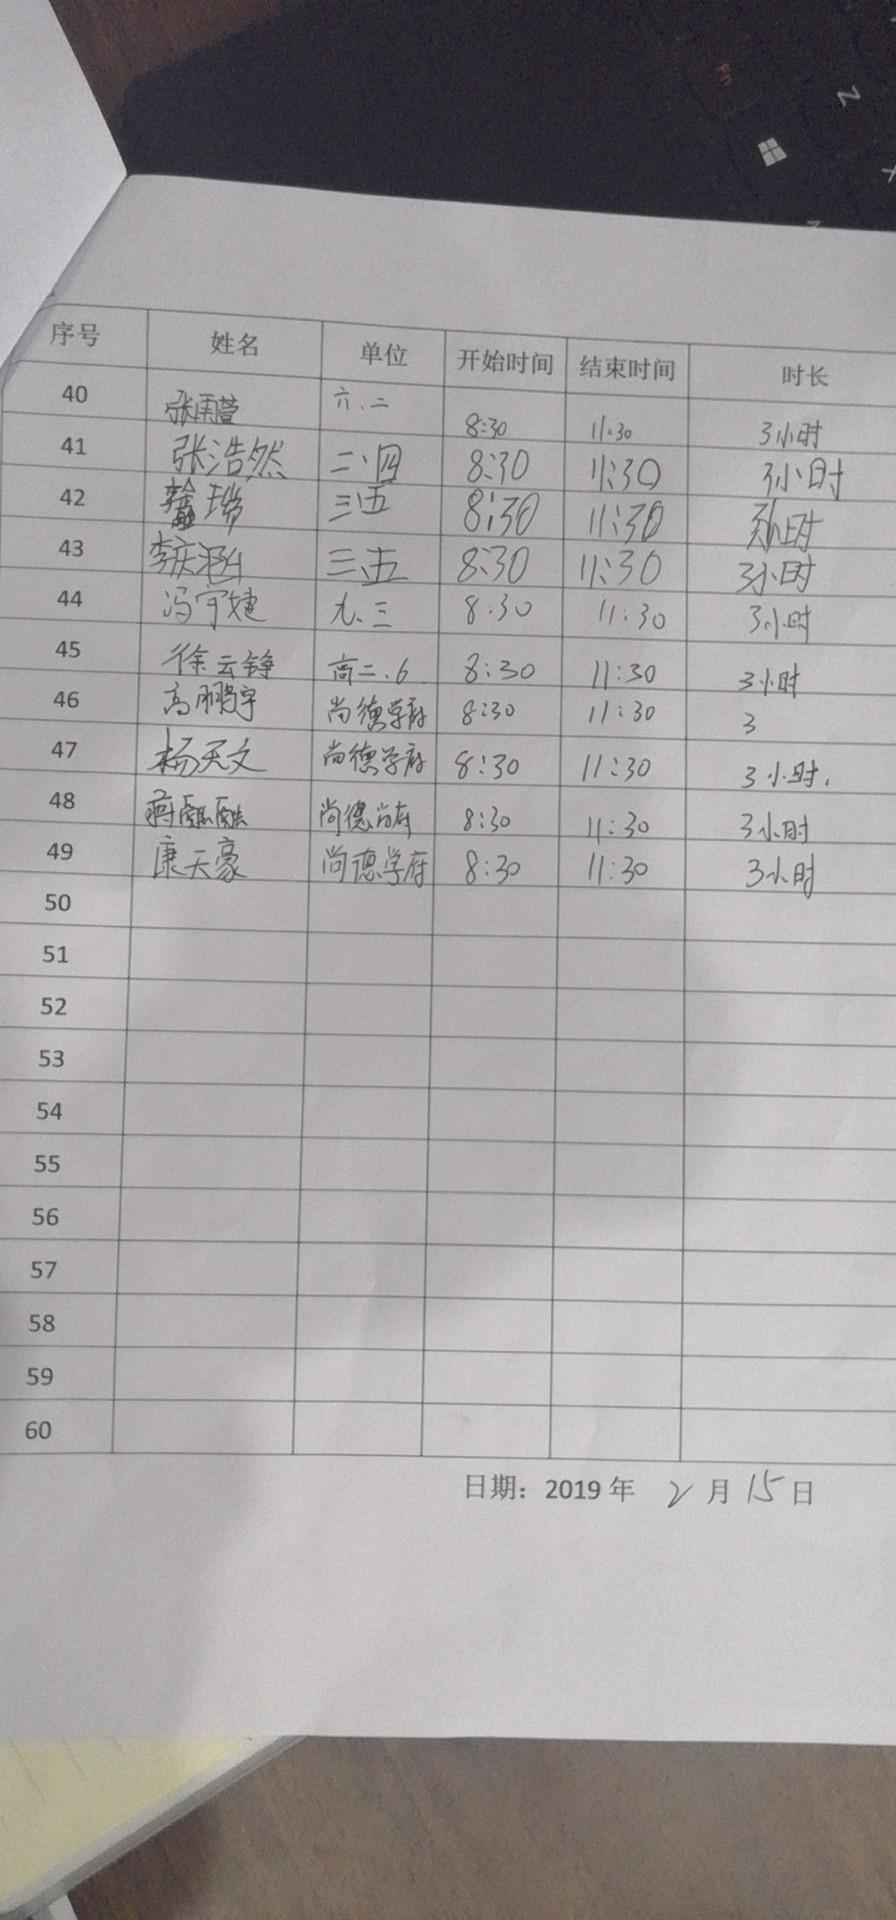 Z
序号 姓名 单位 开始时间 结束时间 时长
40 张雨萱 六.二 8:30 11:30 3小时
41 张浩然 二.四 8:30 11:30 3小时
42 瑞 三.五 8:30 11:30 3小时
43 李庆 三.五 8:30 11:30 3小时
44 冯宇婕 九.三 8:30 11:30 3小时
45 徐云铮 高二.6 8:30 11:30 3小时
46 高鹏宇 尚德学府 8:30 11:30 3
47 杨天文 尚德学府 8:30 11:30 3小时.
48 尚德尚府 8:30 11:30 3小时
49 康天豪 尚德学府 8:30 11:30 3小时
50
51
52
53
54
55
56
57
58
59
60
日期：2019年 2月15日